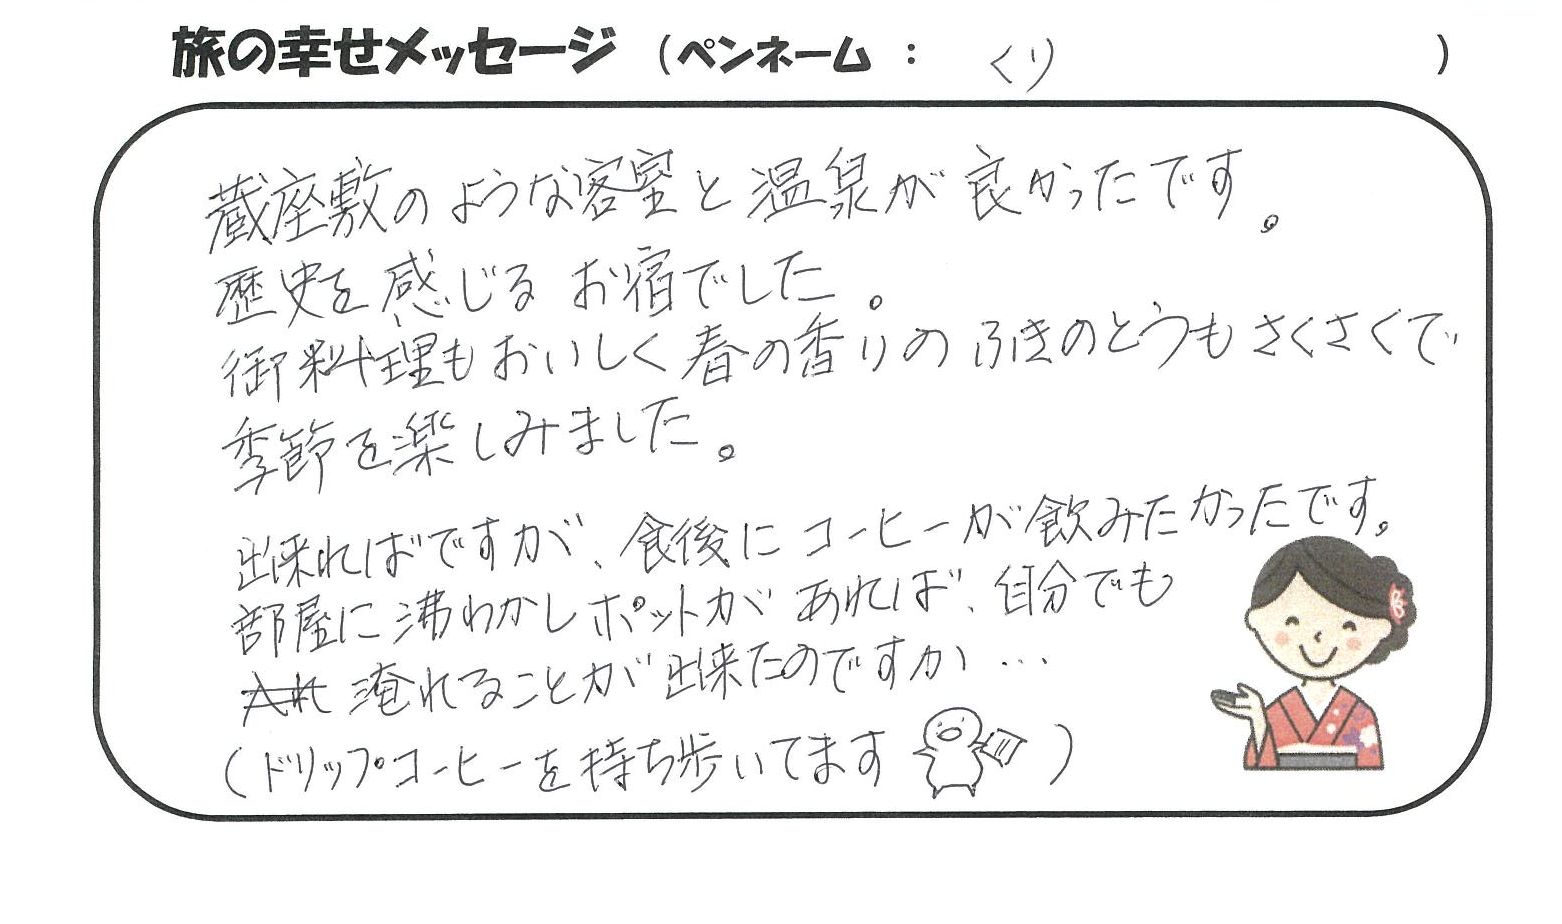 旅の幸せメッセージ（ペンネーム：くり）
蔵座敷のような客室と温泉が良かったです。
歴史を感じるお宿でした。
御料理もおいしく春の香りのふきのとうもさくさくで
季節を楽しみました。
出来ればですが、食後にコーヒーが飲みたかったです。
部屋に沸わかしポットがあれば、自分でも
入れ 淹れることが出来たのですが…
（ドリップコーヒーを持ち歩いてます）